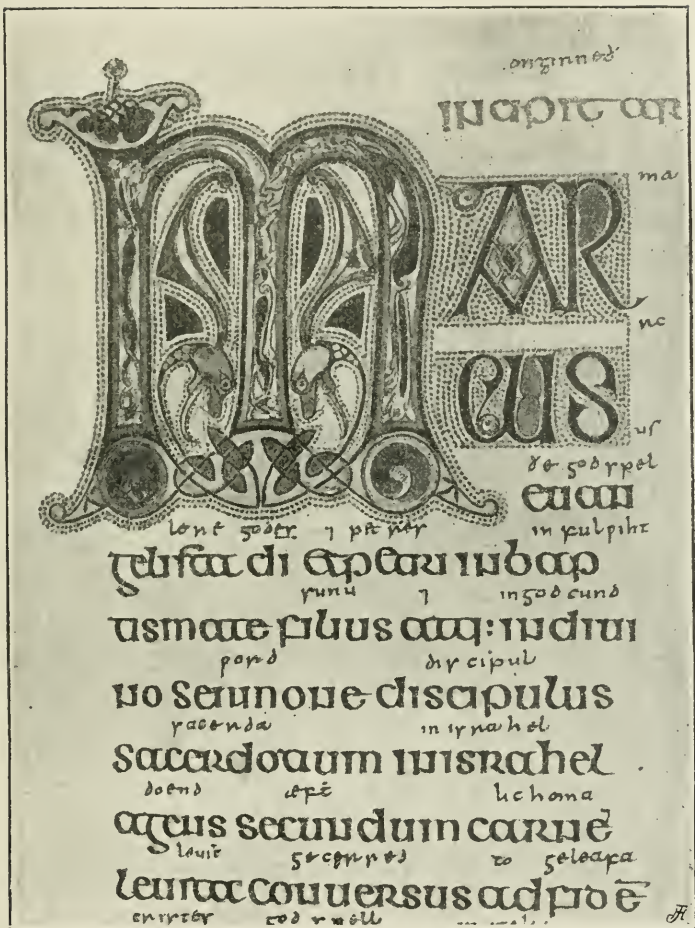 onginneð
INCIPIT AR
MAR ma
nc
CUS us
ðe godspel
euan
godes ⁊ petres in fulpiht
gelista di et petri in bap
sunu ⁊ in godcund
tismate filius atq: in diui
word discipul
no sermone discipulus
sacerda in israhel
sacerdotium in israhel
doend æft̄ lichoma
agens secundum carnē
leuit gecerred to geleafa
leuita conuersus ad fidē
cristes godspell